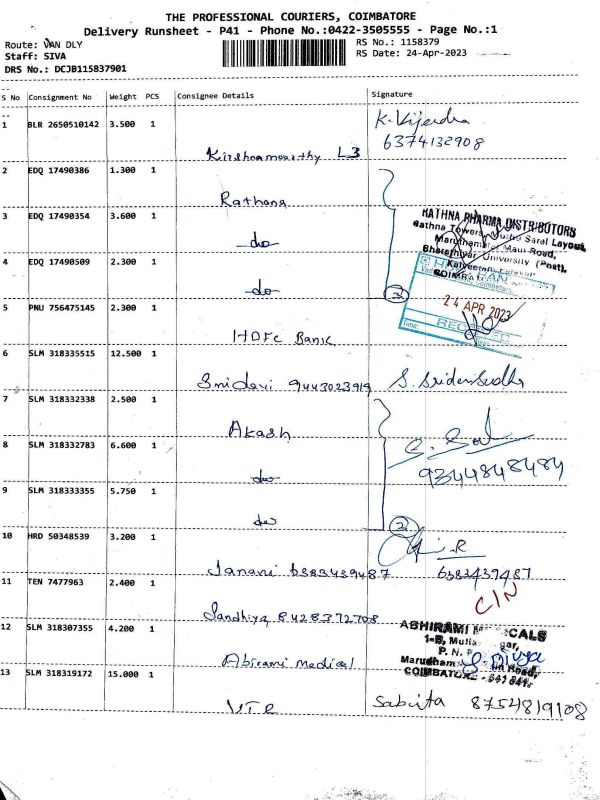 THE PROFESSIONAL COURIERS, COIMBATORE
Delivery Runsheet - P41 - Phone No.:0422-3505555 - Page No.:1
Route: VAN DLY
RS No.: 1158379
Staff: SIVA
RS Date: 24-Apr-2023
DRS No.: DCJB115837901
S No Consignment No Weight PCS Consignee Details Signature
1 BLR 2650510142 3.500 1 K. Vijendra
6374132908
Krishnamoorthy L3
2 EDQ 17490386 1.300 1
Rathana
3 EDQ 17490354 3.600 1
do
RATHNA PHARMA DISTRIBUTORS
Rathna Towers, Saral Layout,
Marudhamalai Main Road,
Bharathiyar University (Post),
4 EDQ 17490509 2.300 1
do
2
5 PNU 756475145 2.300 1
24 APR 2023
RECEIVED
HDFC Bank
6 SLM 318335515 12.500 1
Sridevi 9443023919 S. Sridevi
7 SLM 318332338 2.500 1
Akash
8 SLM 318332783 6.600 1
do
9344848484
9 SLM 318333355 5.750 1
do
2
10 HRD 50348539 3.200 1
Janani 6383439487 6383439487
11 TEN 7477963 2.400 1 CIN
Sandhiya 8428372708
12 SLM 318307355 4.200 1
ABHIRAMI
1-B,
P. N.
Marudham Road,
COIMBATORE - 641 041.
S. Divya
Abirami Medical
13 SLM 318319172 15.000 1 Sabirta 8754819108
V.T.R